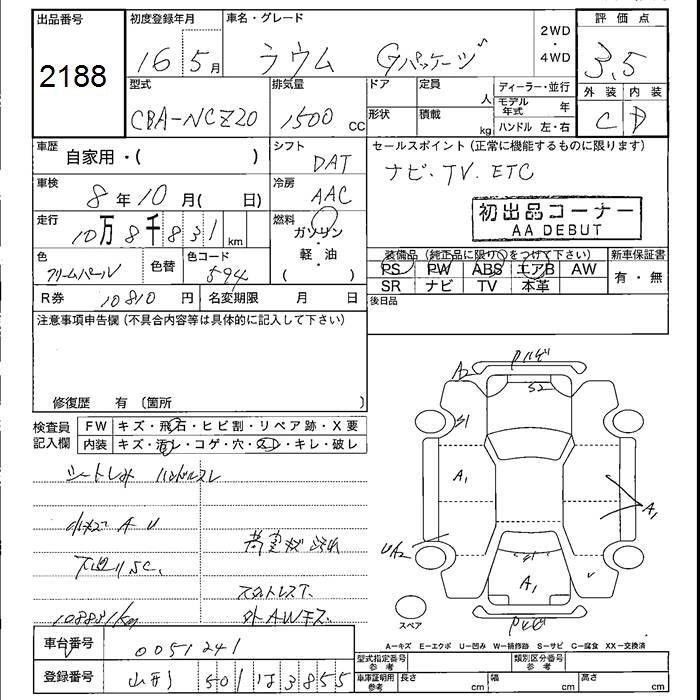 出品番号
2188
初度登録年月
16 5月
車名・グレード
ラウム Gパッケージ
2WD
・
4WD
評価点
3.5
外装 内装
C D
型式
CBA-NCZ20
排気量
1500 cc
ドア
形状
定員
人
積載
kg
ディーラー・並行
モデル年式 年
ハンドル 左・右
車歴
自家用・( )
シフト
DAT
車検
8年10月( 日)
冷房
AAC
走行
10万8千831km
燃料
ガソリン
・
軽・油
( )
色
クリームパール
色替
色コード
594
R券
10810円
名変期限 月 日
セールスポイント(正常に機能するものに限ります)
ナビ・TV. ETC
初出品コーナー
AA DEBUT
装備品(純正品に限り○をつけて下さい)
PS PW ABS エアB AW
SR ナビ TV 本革
新車保証書
有・無
後日品
注意事項申告欄(不具合内容等は具体的に記入して下さい)
修復歴 有(箇所 )
検査員
記入欄
FW キズ・飛石・ヒビ割・リペア跡・X要
内装 キズ・汚レ・コゲ・穴・スレ・キレ・破レ
シートしみ ハンドルスレ
小キズ A U
下廻りSC.
スタットレスT.
108831kg
外AWキズ
バンパキズ
A2
S2
S1
A1
A1
U/A2
S1
A1
スペア
A-キズ E-エクボ U-凹み W-補修跡 S-サビ C-腐食 XX-交換済
車台番号
0051241
登録番号
山形 501 は 3855
型式指定番号
参考
類別区分番号
参考
車庫証明用
参考
長さ cm
幅 cm
高さ cm